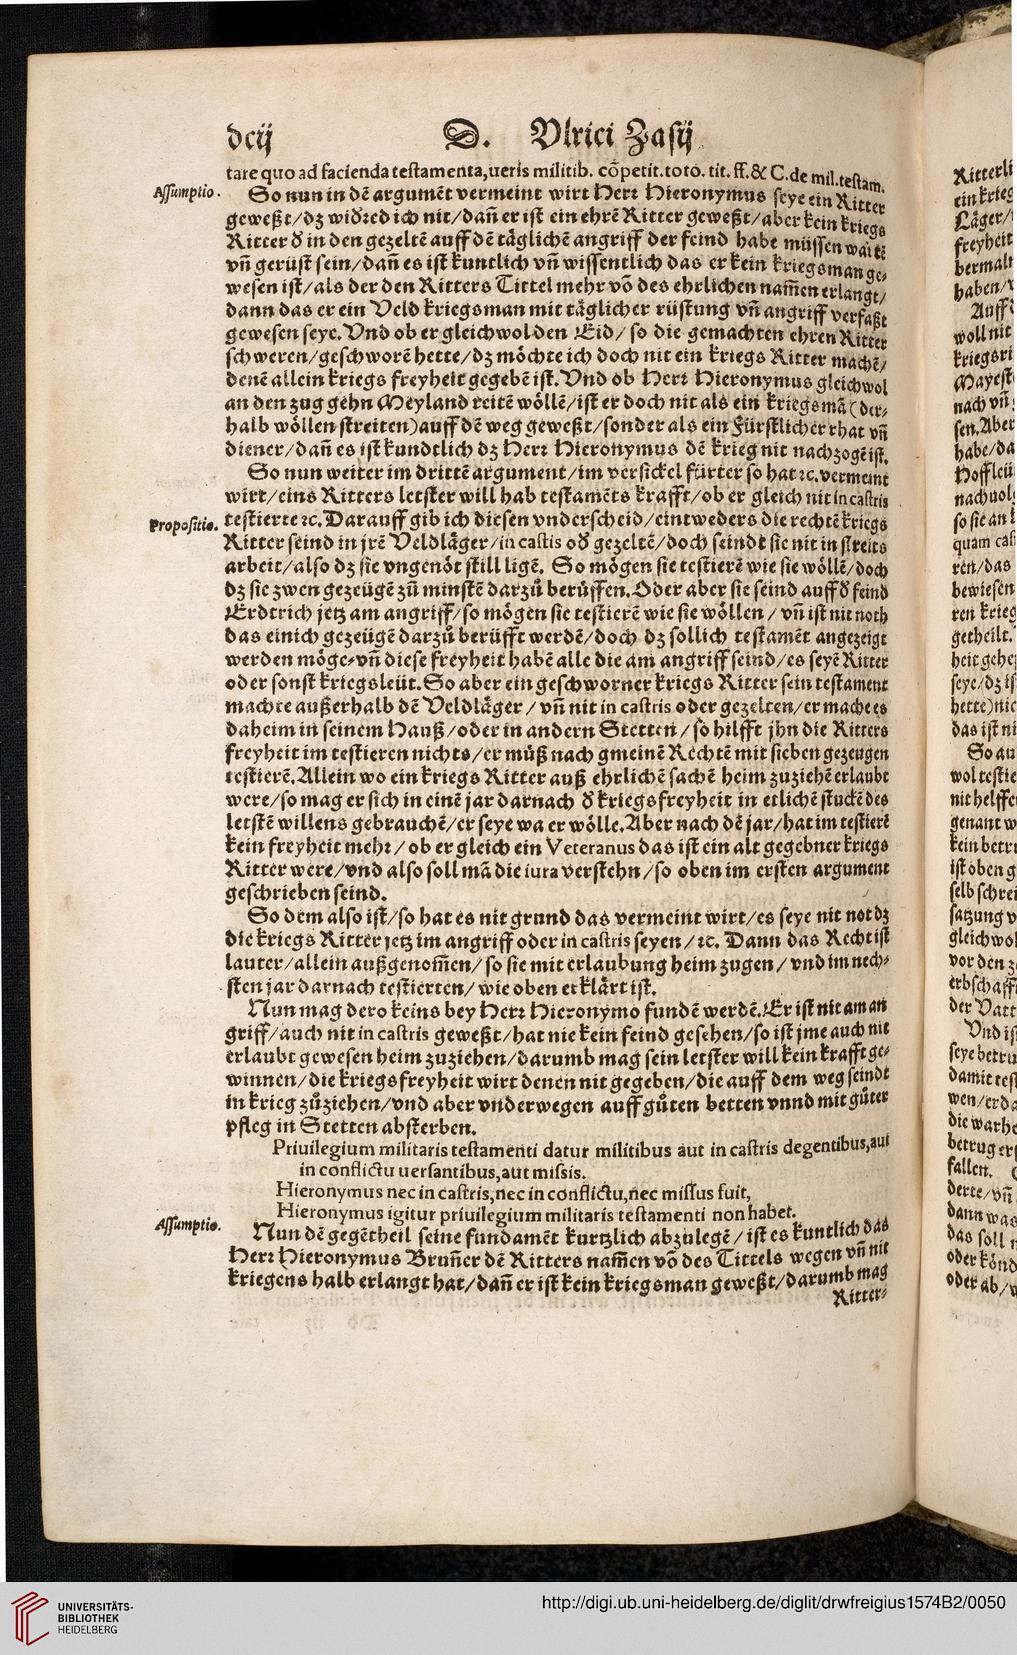 dcij D. Vlrici Zasij
tare quo ad facienda testamenta, ueris militib. cōpetit. toto. tit. ff. & C. de mil. testam.
Assumptio.
So nun in dē argumēt vermeint wirt Herr Hieronymus seye ein Ritter
geweßt/dz widred ich nit/dañ er ist ein ehrē Ritter geweßt/aber kein kriegs
Ritter d̄ in den gezeltē auff dē täglichē angriff der feind habe müssen wartē
vñ gerüst sein/dañ es ist kuntlich vñ wissentlich das er kein kriegsman ge-
wesen ist/als der den Ritters Tittel mehr vō des ehrlichen nam̄en erlangt/
dann das er ein Veld kriegsman mit täglicher rüstung vñ angriff verfaßt
gewesen seye. Vnd ob er gleichwol den Eid/ so die gemachten ehren Ritter
schweren/geschworē hette/dz möchte ich doch nit ein kriegs Ritter machē/
denē allein kriegs freyheit gegebē ist. Vnd ob Herr Hieronymus gleichwol
an den zug gehn Meyland reitē wöllē/ist er doch nit als ein kriegsmā (der-
halb wöllen streiten) auff dē weg geweßt/sonder als ein Fürstlicher rhat vñ
diener/dañ es ist kundtlich dz Herr Hieronymus dē krieg nit nachzogē ist.
So nun weiter im drittē argument/im versickel fürter so hat ꝛc. vermeint
wirt/eins Ritters letster will hab testamēts krafft/ob er gleich nit in castris
Propositio.
testierte ꝛc. Darauff gib ich diesen vnderscheid/eintweders die rechtē kriegs
Ritter seind in jrē Veldläger/in castis od̄ gezeltē/doch seindt sie nit in streits
arbeit/also dz sie vngenöt still ligē. So mögen sie testierē wie sie wöllē/doch
dz sie zwen gezeügē zů minstē darzů berüffen. Oder aber sie seind auff d̄ feind
Erdtrich jetz am angriff/so mögen sie testierē wie sie wöllen/ vñ ist nit noth
das einich gezeügē darzů berüfft werdē/doch dz sollich testamēt angezeigt
werden möge-vñ diese freyheit habē alle die am angriff seind/es seyē Ritter
oder sonst kriegsleüt. So aber ein geschworner kriegs Ritter sein testament
machte außerhalb dē Veldläger/ vñ nit in castris oder gezelten/er mache es
daheim in seinem Hauß/oder in andern Stetten/ so hilfft jhn die Ritters
freyheit im testieren nichts/er můß nach gmeinē Rechtē mit sieben gezeugen
testierē. Allein wo ein kriegs Ritter auß ehrlichē sachē heim zuziehē erlaubt
were/so mag er sich in einē jar darnach d̄ kriegsfreyheit in etlichē stuckē des
letstē willens gebrauchē/er seye wa er wölle. Aber nach dē jar/hat im testierē
kein freyheit mehr/ ob er gleich ein Veteranus das ist ein alt gegebner kriegs
Ritter were/vnd also soll mā die iura verstehn/so oben im ersten argument
geschrieben seind.
So dem also ist/so hat es nit grund das vermeint wirt/es seye nit not dz
die kriegs Ritter jetz im angriff oder in castris seyen/ ꝛc. Dann das Recht ist
lauter/allein außgenom̄en/ so sie mit erlaubung heim zugen/ vnd im nech-
sten jar darnach testierten/ wie oben erklärt ist.
Nun mag dero keins bey Herr Hieronymo fundē werdē. Er ist nit am an
griff/auch nit in castris geweßt/hat nie kein feind gesehen/so ist jme auch nit
erlaubt gewesen heim zuziehen/darumb mag sein letster will kein krafft ge-
winnen/die kriegsfreyheit wirt denen nit gegeben/die auff dem weg seindt
in krieg zůziehen/vnd aber vnderwegen auff gůten betten vnnd mit gůter
pfleg in Stetten absterben.
Priuilegium militaris testamenti datur militibus aut in castris degentibus, aut
in conflictu uersantibus, aut missis.
Hieronymus nec in castris, nec in conflictu, nec missus fuit,
Hieronymus igitur priuilegium militaris testamenti non habet.
Assumptio.
Nun dē gegētheil seine fundamēt kurtzlich abzulegē/ ist es kuntlich das
Herr Hieronymus Brun̄er dē Ritters nam̄en vō des Tittels wegen vñ nit
kriegens halb erlangt hat/dañ er ist kein kriegsman geweßt/darumb mag
Ritter-
UNIVERSITÄTS-
BIBLIOTHEK
HEIDELBERG
http://digi.ub.uni-heidelberg.de/diglit/drwfreigius1574B2/0050